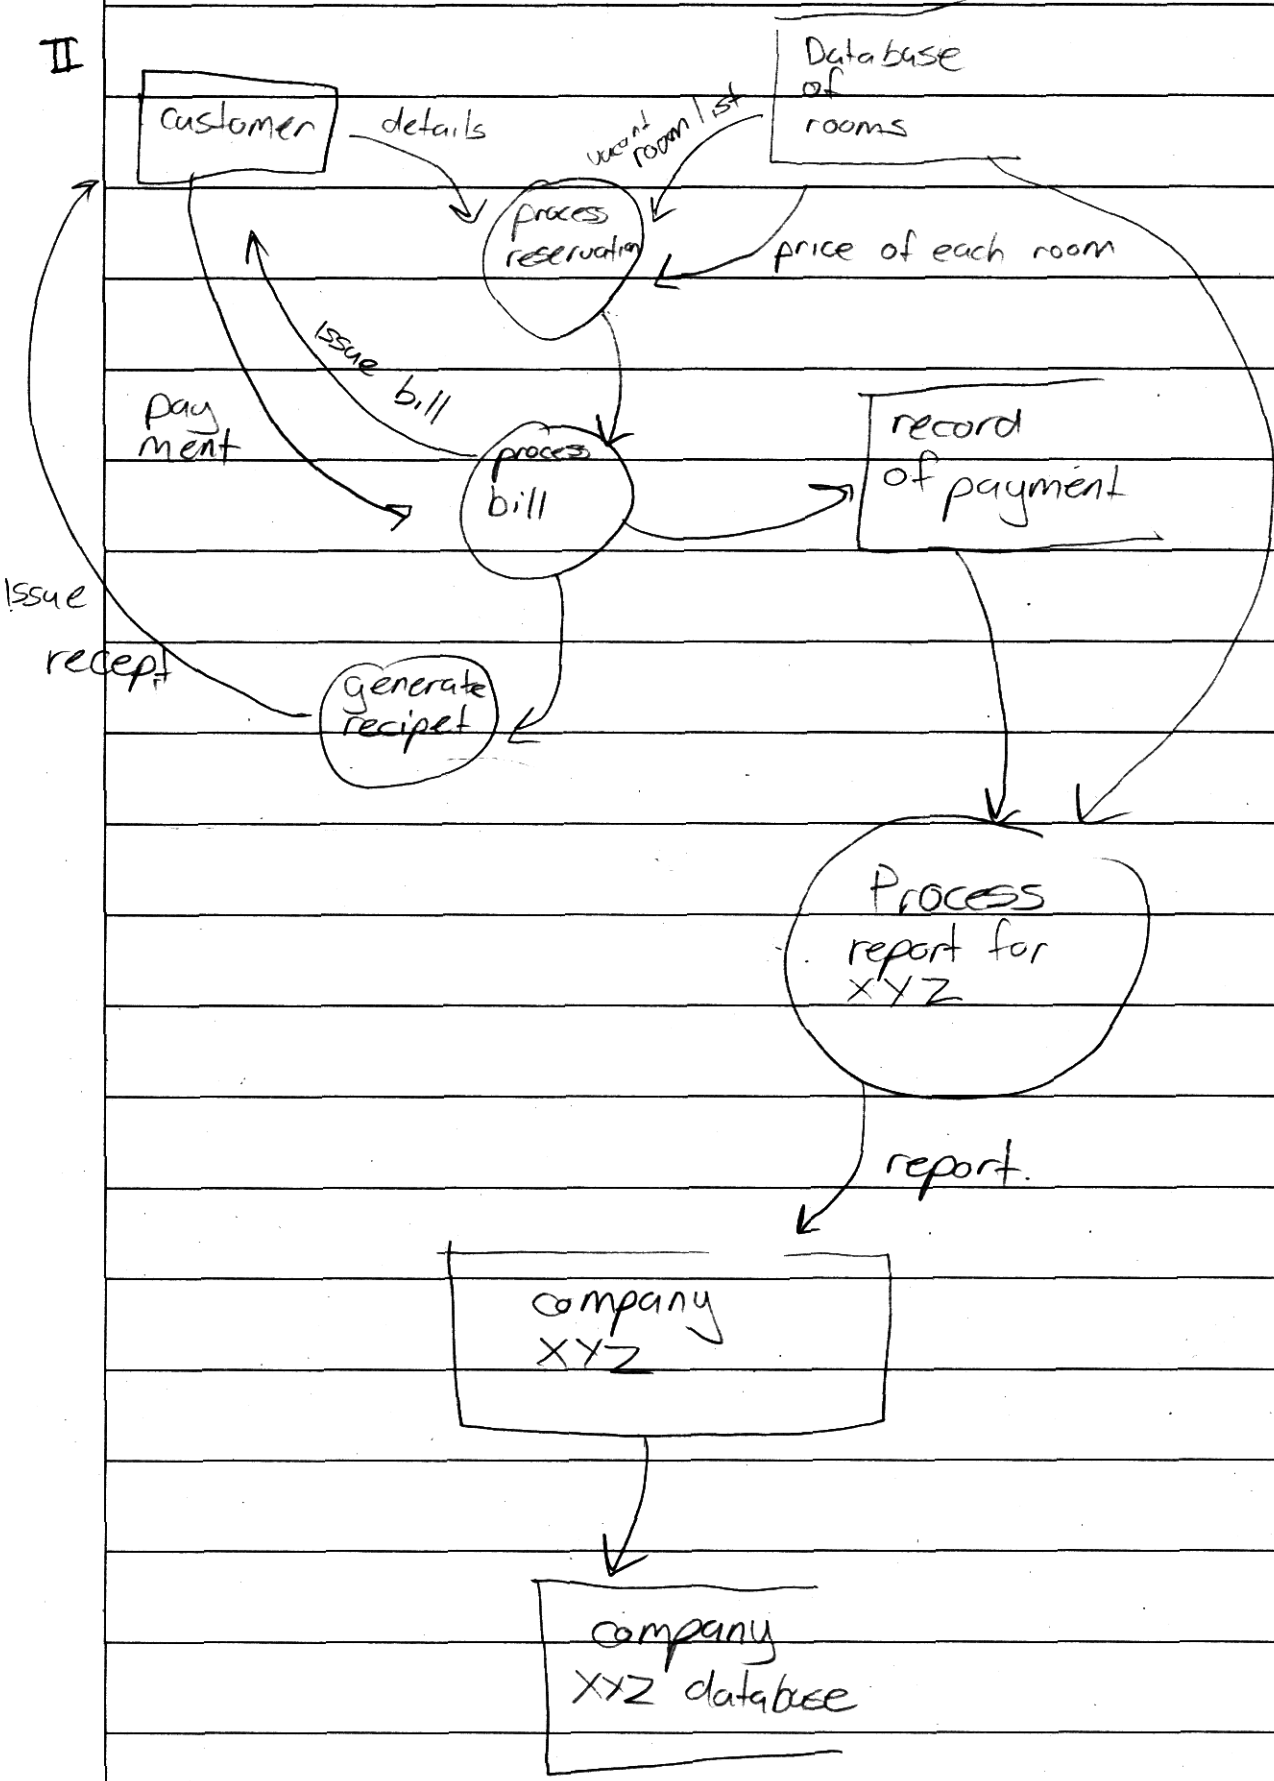 II
customer
details
vacant
room list
Database
of
rooms
process
reservation
price of each room
Issue bill
pay
ment
process
bill
record
of payment
Issue
recept
generate
recipet
Process
report for
XYZ
report.
company
XYZ
company
XYZ database